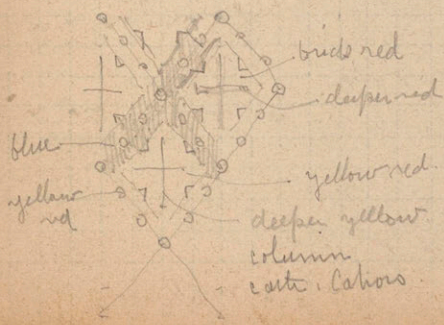 brick red
deeper red
blue
yellow red
yellow red
deeper yellow
column